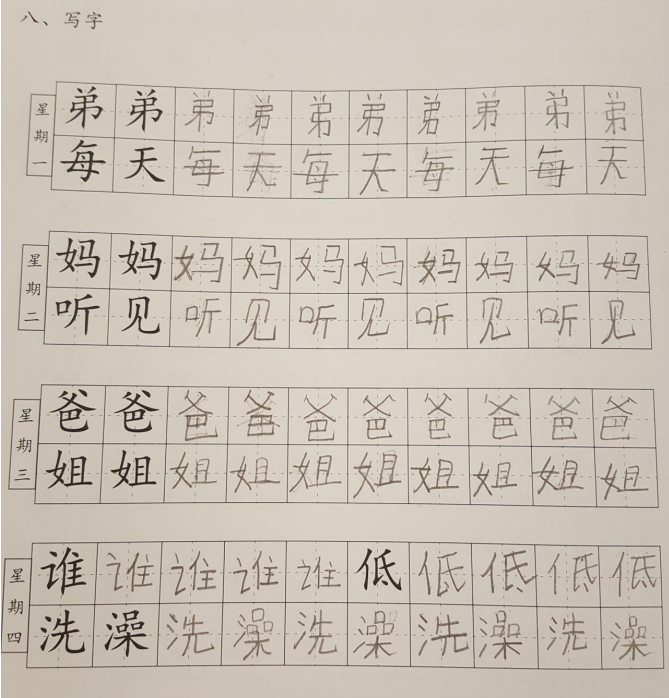 八、写字
星期一
弟弟弟弟弟弟弟弟弟弟
每天每天每天每天每天
星期二
妈妈妈妈妈妈妈妈妈妈
听见听见听见听见听见
星期三
爸爸爸爸爸爸爸爸爸爸
姐姐姐姐姐姐姐姐姐姐
星期四
谁谁谁谁谁低低低低低
洗澡洗澡洗澡洗澡洗澡